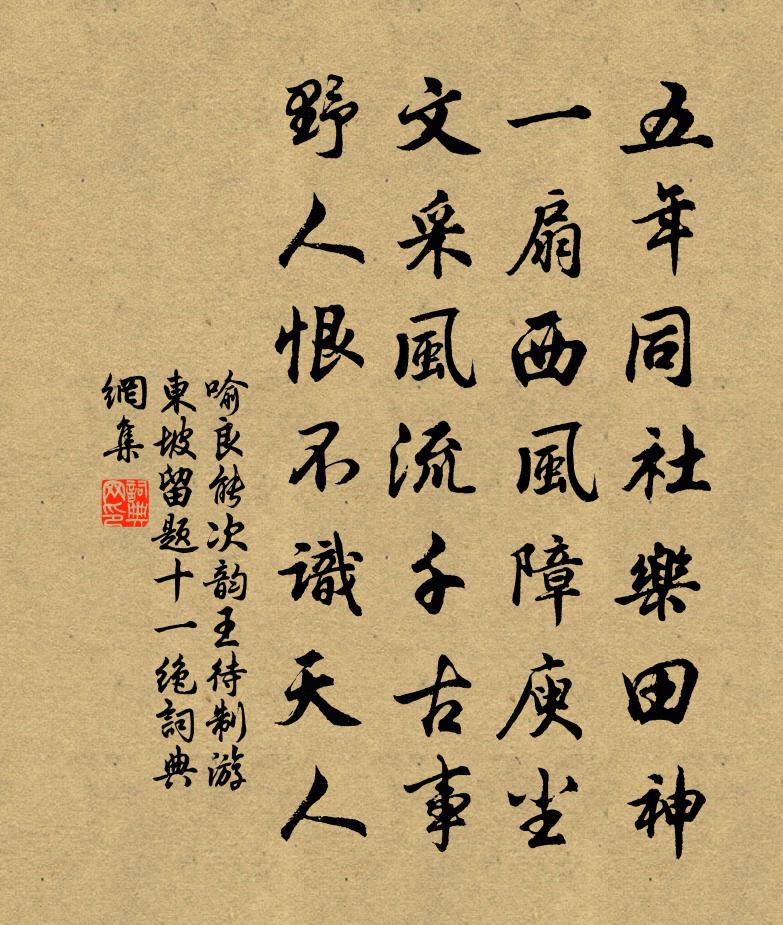 五年同社樂田神
一扇西風障庾尘
文采風流千古事
野人恨不識天人
喻良能次韵王待制游
東坡留題十一絶詞典
網集
詞典网印